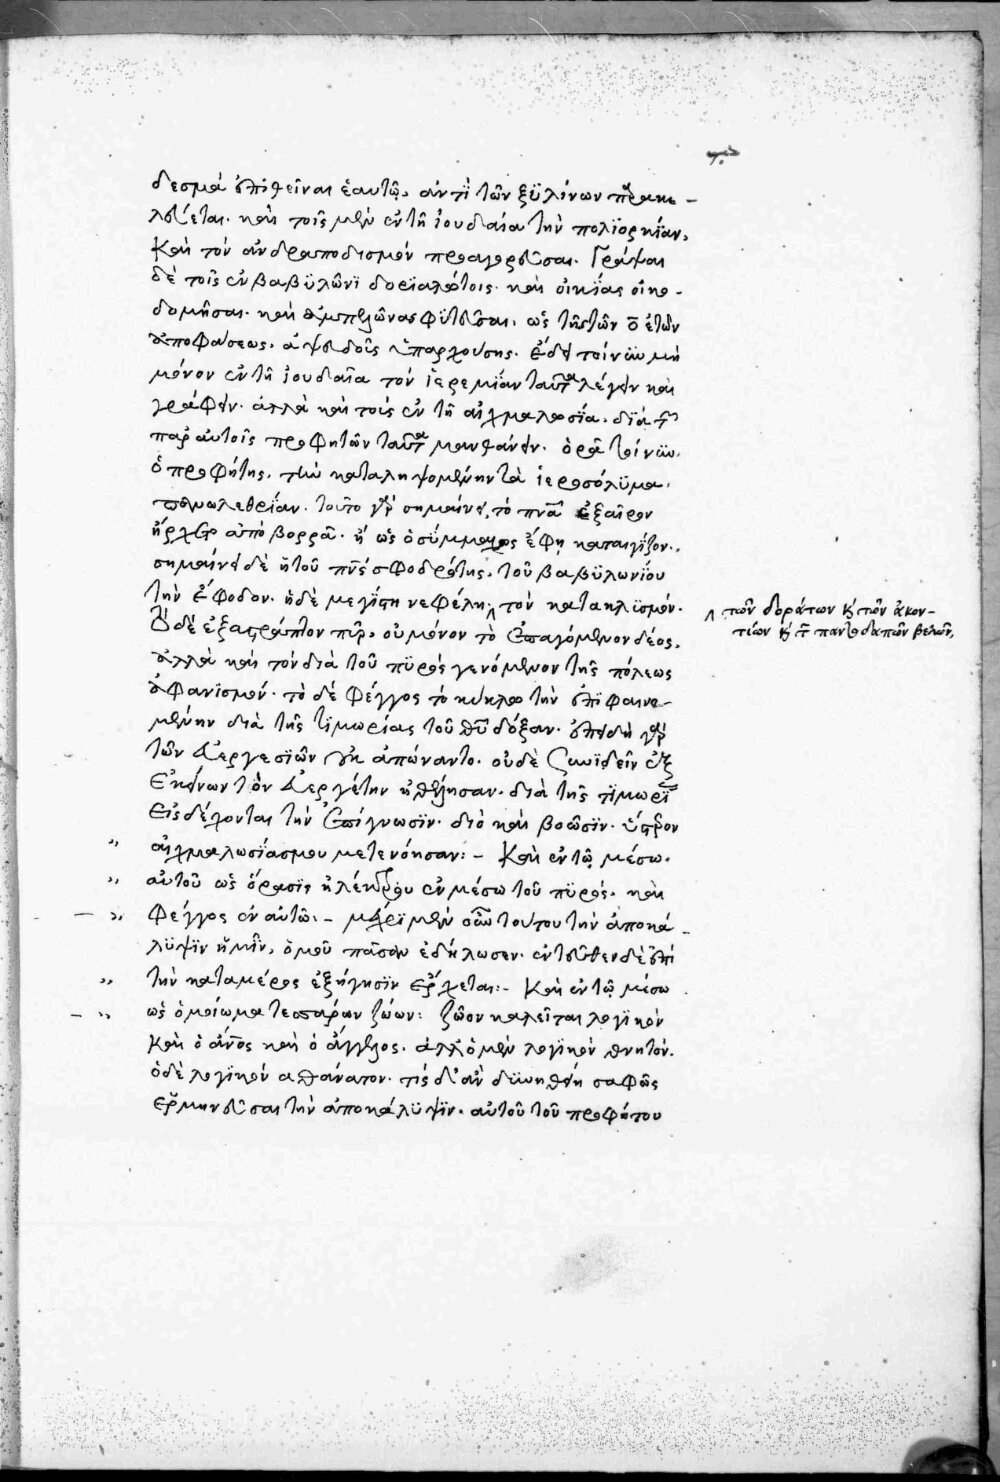 δεσμὰ ἐπιθεῖναι ἑαυτῷ. ἀντὶ τῶν ξϋλίνων παρακε-
λεύεται. καὶ τοῖς μὲν ἐν τῇ ἰουδαία τὴν πολϊορκίαν,
καὶ τὸν ἀνδραποδισμὸν προαγορεῦσαι. Γράψαι
δὲ τοῖς ἐν βαβϋλῶνϊ δορϊαλώτοις. καὶ οἰκίας οἰκο-
δομῆσαι. καὶ ἀμπελῶνας φϋτεῦσαι. ὡς τῆς τῶν ο ἐτῶν
ἀποφάσεως. ἀψευδοῦς ὑπαρχούσης. ἔδει τοίνυν μὴ
μόνον ἐν τῇ ἰουδαῖα τὸν ἱερεμίαν ταῦτα λέγειν καὶ
γράφειν. ἀλλὰ καὶ τοὺς ἐν τῇ αἰχμαλωσία. δϊὰ τ
παρ αὐτοῖς προφητῶν ταῦτα μανθάνειν. ὁρᾶ τοίνυν.
ὁ προφήτης. τὴν καταληψομένην τὰ ἱεροσόλϋμα.
πανωλεθρίαν. τοῦτο γὰρ σημαίνει, τὸ πνα ἐξαῖρον
ἤρχετο ἀπὸ βορρᾶ. ἢ ὡς ὁ σύμμαχος ἔφη καταιγίζον.
σημαίνει δὲ ἡ τοῦ πνς σφοδρότης. τοῦ βαβϋλωνίου
τὴν ἔφοδον. ἡ δὲ μεγίστη νεφέλη, τὸν κατακλϊσμόν.
τῶν δοράτων κ τῶν ἀκον-
τίων κ τ παντοδαπῶν βελῶν.
Τὸ δὲ ἐξαστράπτον πῦρ, οὐ μόνον τὸ ἐπαγόμενον δέος.
ἀλλὰ καὶ τὸν διὰ τοῦ πϋρὸς γενόμενον τῆς πόλεως
ἀφανϊσμόν. τὸ δὲ φέγγος τὸ κύκλω τὴν ἐπϊφαινο-
μένην διὰ τῆς τϊμωρίας τοῦ θυ δόξαν. ἐπειδὴ γὰρ
τῶν εὐεργεσϊῶν οὐκ ἀπώναντο. οὐδὲ συνϊδεῖν ἐξ
ἐκείνων τὸν εὐεργέτην ἠθέλησαν. διὰ τῆς τϊμωρϊ
εἰσδέχονται τὴν ἐπίγνωσϊν. διὸ καὶ βοῶσϊν. ὕστερον
αἰχμαλωσίας μου μετενόησαν:– Καὶ ἐν τῷ μέσω.
αὐτοῦ ὡς ὅρασϊς ἠλέκτρου ἐν μέσω τοῦ πϋρός. καὶ
φέγγος ἐν αὐτῷ:– μέχρϊ μὲν οὖν τούτου τὴν ἀποκά-
λϋψϊν ἡμῖν, ὁμοῦ πᾶσαν ἐδήλωσεν. ἐντεῦθεν δὲ ἐπὶ
τὴν καταμέρος ἐξήγησϊν ἔρχεται:– Καὶ ἐν τῷ μέσω
ὡς ὁμοίωμα τεσσάρων ζώων: ζῶον καλεῖται λογϊκὸν
καὶ ὁ ἄνος καὶ ὁ ἄγγελος. ἀλλ ὁ μὲν λογϊκὸν θνητόν.
ὁ δὲ λογϊκὸν ἀθάνατον. τίς δ' ἂν δϋνηθείη σαφῶς
ἑρμηνεῦσαι τὴν ἀποκάλϋψϊν. αὐτοῦ τοῦ προφήτου